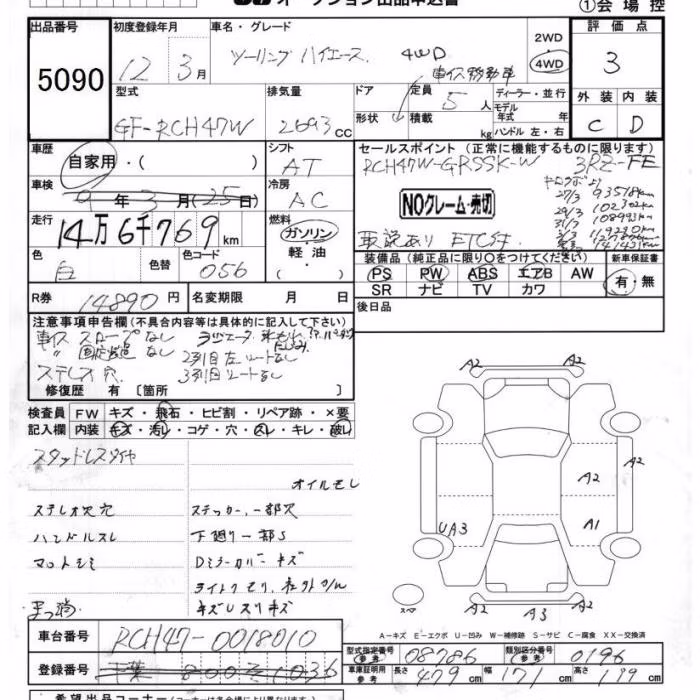 オークション出品申込書
①会場控
出品番号 初度登録年月 車名・グレード 2WD 4WD 評価点
5090 12年3月 ツーリングハイエース 4WD 車イス移動車 3
型式 排気量 ドア 定員 5人 ディーラー・並行 外装 内装
GF-RCH47W 2693cc 形状 積載 kg モデル年式 年式 ハンドル 左・右 C D
車歴 シフト セールスポイント(正常に機能するものに限ります)
自家用・( ) AT RCH47W-GRSSK-W 3RZ-FE
車検 冷房
年3月(25日) AC NOクレーム・売切
27/3 93518km
29/3 102302km
31/3 108993km
走行 燃料
14万6千769km ガソリン 取説あり ETC付
色 色替 色コード 軽油
白 056 ( )
装備品(純正品に限り○をつけてください) 新車保証書
PS PW ABS エアB AW 有・無
SR ナビ TV カワ
R券 14890円 名変期限 月 日 後日品
注意事項申告欄(不具合内容等は具体的に記入して下さい)
車イス スロープなし
〃 固定装置なし 2列目左シートなし
ステレス穴 3列目シートなし
修復歴 有 [箇所 ]
検査員 FW キズ・飛石・ヒビ割・リペア跡・×要
記入欄 内装 キズ・汚レ・コゲ・穴・スレ・キレ・破レ
スタッドレスタイヤ
オイルモレ
ステレオ穴 ステッカー、一部穴
ハンドルスレ 下廻り一部S
マットシミ Dミラーカバーキズ
キズレスリキズ
A2 A2
A2 A2
A1
UA3
スペ A2 A3 A2
A-キズ E-エクボ U-凹み W-補修跡 S-サビ C-腐食 XX-交換済
車台番号 RCH47-0018010
登録番号 千葉 800 そ 1036
型式指定番号(参考) 08786 類別区分番号(参考) 0196
車庫証明用(参考) 長さ 479cm 幅 171cm 高さ 199cm
希望出品コーナー